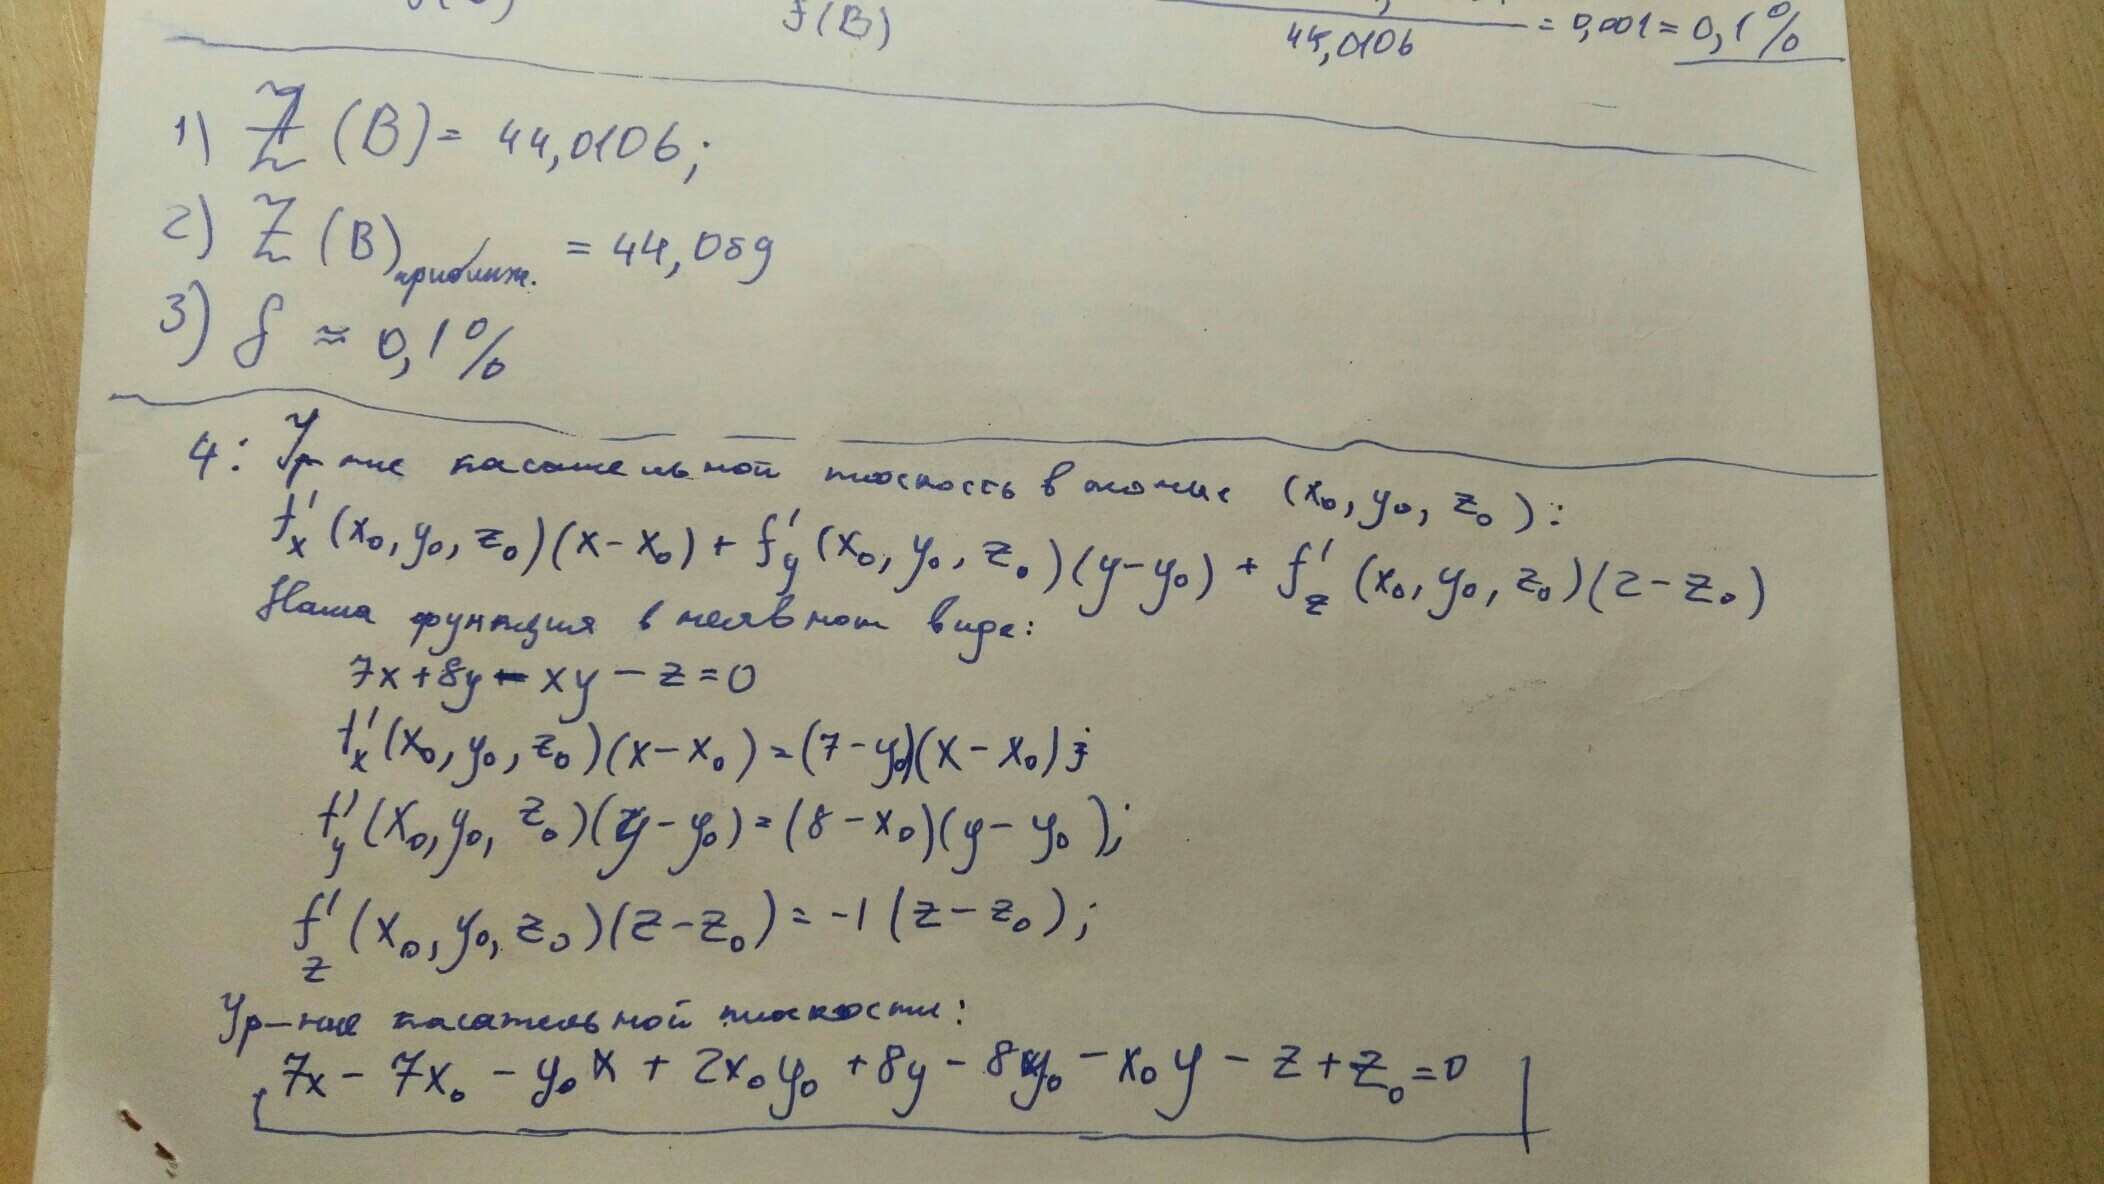 f(B)
44,0106 = 0,001 = 0,1%
1) Z (B) = 44,0106;
2) Z (B) приближ. = 44,059
3) δ ≈ 0,1%
4: Ур-ние касательной плоскость в точке (x₀, y₀, z₀):
f'ₓ (x₀, y₀, z₀)(x-x₀) + f'y (x₀, y₀, z₀)(y-y₀) + f'z (x₀, y₀, z₀)(z-z₀)
Наша функция в неявном виде:
7x+8y-xy-z=0
f'ₓ(x₀, y₀, z₀)(x-x₀)=(7-y₀)(x-x₀);
f'y(x₀, y₀, z₀)(y-y₀)=(8-x₀)(y-y₀);
f'z(x₀, y₀, z₀)(z-z₀)=-1(z-z₀);
Ур-ние касательной плоскости:
7x-7x₀-y₀x+2x₀y₀+8y-8y₀-x₀y-z+z₀=0